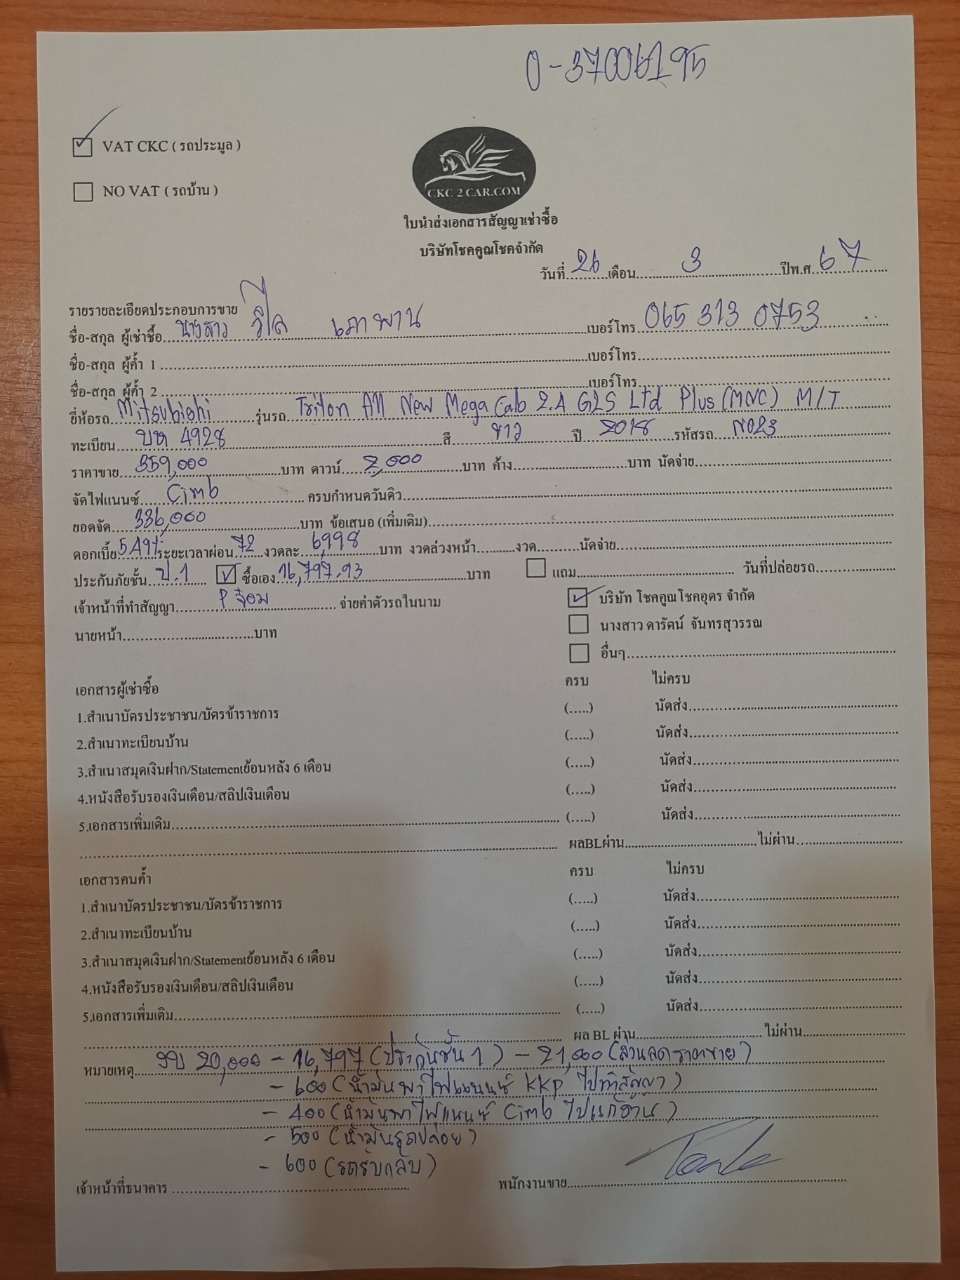 0-37006195
VAT CKC ( รถประมูล )
NO VAT ( รถบ้าน )
CKC 2 CAR.COM
ใบนำส่งเอกสารสัญญาเช่าซื้อ
บริษัทโชคคูณโชคจำกัด
วันที่ 26 เดือน 3 ปีพ.ศ. 67
รายรายละเอียดประกอบการขาย
ชื่อ-สกุล ผู้เช่าซื้อ นางสาว เภาพาน เบอร์โทร 065 313 0753
ชื่อ-สกุล ผู้ค้ำ 1 เบอร์โทร
ชื่อ-สกุล ผู้ค้ำ 2 เบอร์โทร
ยี่ห้อรถ Mitsubishi รุ่นรถ Triton All New Mega Cab 2.4 GLS Ltd Plus (MNC) M/T
ทะเบียน บท 4928 สี ขาว ปี 2018 รหัสรถ N023
ราคาขาย 359,000 บาท ดาวน์ 2,000 บาท ค้าง บาท นัดจ่าย
จัดไฟแนนซ์ Cimb ครบกำหนดวันคิว
ยอดจัด 336,000 บาท ข้อเสนอ (เพิ่มเติม)
ดอกเบี้ย 5.49% ระยะเวลาผ่อน 72 งวดละ 6,998 บาท งวดล่วงหน้า งวด นัดจ่าย
ประกันภัยชั้น ป.1 ซื้อเอง 16,797.93 บาท แถม วันที่ปล่อยรถ
เจ้าหน้าที่ทำสัญญา P จ๊อม จ่ายค่าตัวรถในนาม บริษัท โชคคูณโชคอุดร จำกัด
นายหน้า บาท นางสาว ดารัตน์ จันทรสุวรรณ
อื่นๆ
เอกสารผู้เช่าซื้อ ครบ ไม่ครบ
1.สำเนาบัตรประชาชน/บัตรข้าราชการ (.....) นัดส่ง
2.สำเนาทะเบียนบ้าน (.....) นัดส่ง
3.สำเนาสมุดเงินฝาก/Statementย้อนหลัง 6 เดือน (.....) นัดส่ง
4.หนังสือรับรองเงินเดือน/สลิปเงินเดือน (.....) นัดส่ง
5.เอกสารเพิ่มเติม (.....) นัดส่ง
ผลBLผ่าน ไม่ผ่าน
เอกสารคนค้ำ ครบ ไม่ครบ
1.สำเนาบัตรประชาชน/บัตรข้าราชการ (.....) นัดส่ง
2.สำเนาทะเบียนบ้าน (.....) นัดส่ง
3.สำเนาสมุดเงินฝาก/Statementย้อนหลัง 6 เดือน (.....) นัดส่ง
4.หนังสือรับรองเงินเดือน/สลิปเงินเดือน (.....) นัดส่ง
5.เอกสารเพิ่มเติม (.....) นัดส่ง
ผล BL ผ่าน ไม่ผ่าน
หมายเหตุ งบ 20,000 - 16,797 (ประกันชั้น 1) - 21,000 (ส่วนลดราคาขาย)
- 600 (น้ำมันพาไฟแนนซ์ KKP ไปทำสัญญา)
- 400 (น้ำมันพาไฟแนนซ์ Cimb ไปแก้งาน)
- 500 (น้ำมันรถปล่อย)
- 600 (รถรับกลับ)
เจ้าหน้าที่ธนาคาร พนักงานขาย